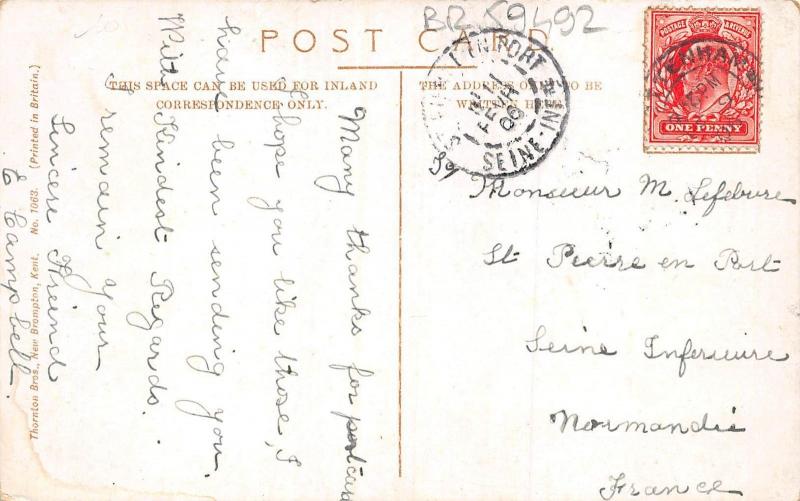 BR 59492
POST CARD.
THIS SPACE CAN BE USED FOR INLAND
CORRESPONDENCE ONLY.
THE ADDRESS ONLY TO BE
WRITTEN HERE.
Many thanks for postcard
I hope you like those, I
have been sending you.
With Kindest Regards.
I remain your
Sincere Freind
E Campbell.
Thornton Bros., New Brompton, Kent. No. 1063. (Printed in Britain.)
POSTAGE & REVENUE
ONE PENNY
EN PORT
SEINE-INF
FEVR
06
Monsieur M. Lefebure
St Pierre en Port
Seine Inferieure
Normandie
France